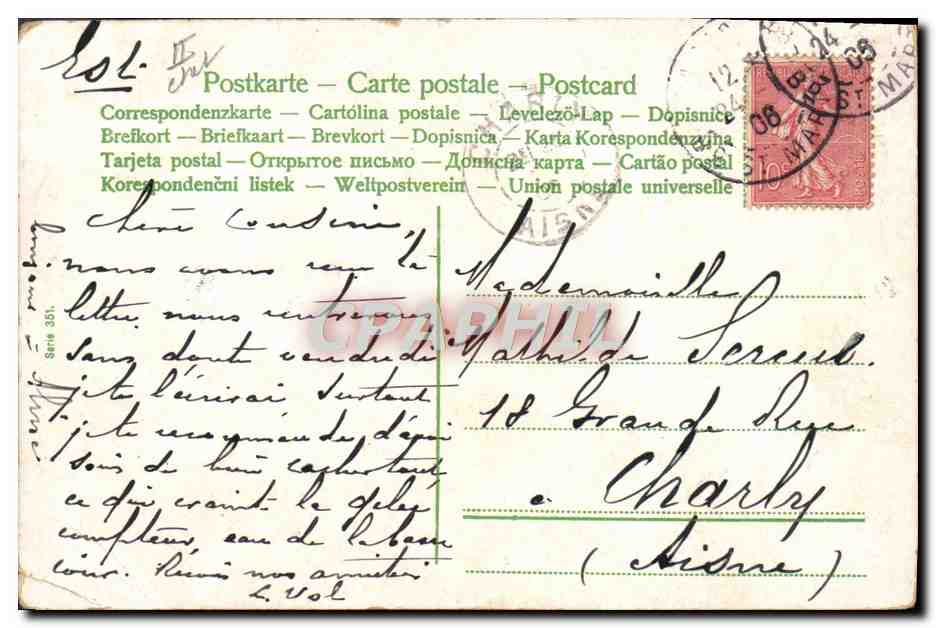 Est.
Postkarte — Carte postale — Postcard
Correspondenzkarte — Cartolina postale — Levelezö-Lap — Dopisnice
Brefkort — Briefkaart — Brevkort — Dopisnica — Karta Korespondenzyina
Tarjeta postal — Открытое письмо — Дописна карта — Cartão postal
Korespondenčni listek — Weltpostverein — Union postale universelle
Chère Cousine,
nous avons reçu ta
lettre nous rentrerons
sans doute vendredi
je te l'écrirai surtout
je te recommande
sois de bien
ce qui craint la gelée
compteur eau de la basse
cour. Reçois nos amitiés
L. Vol
Serie 351.
Mademoiselle
Mathilde
18 Grande Rue
a Charly
(Aisne)
CPAPHIL
CHARLY
AISNE
12
24
MARS
06
10